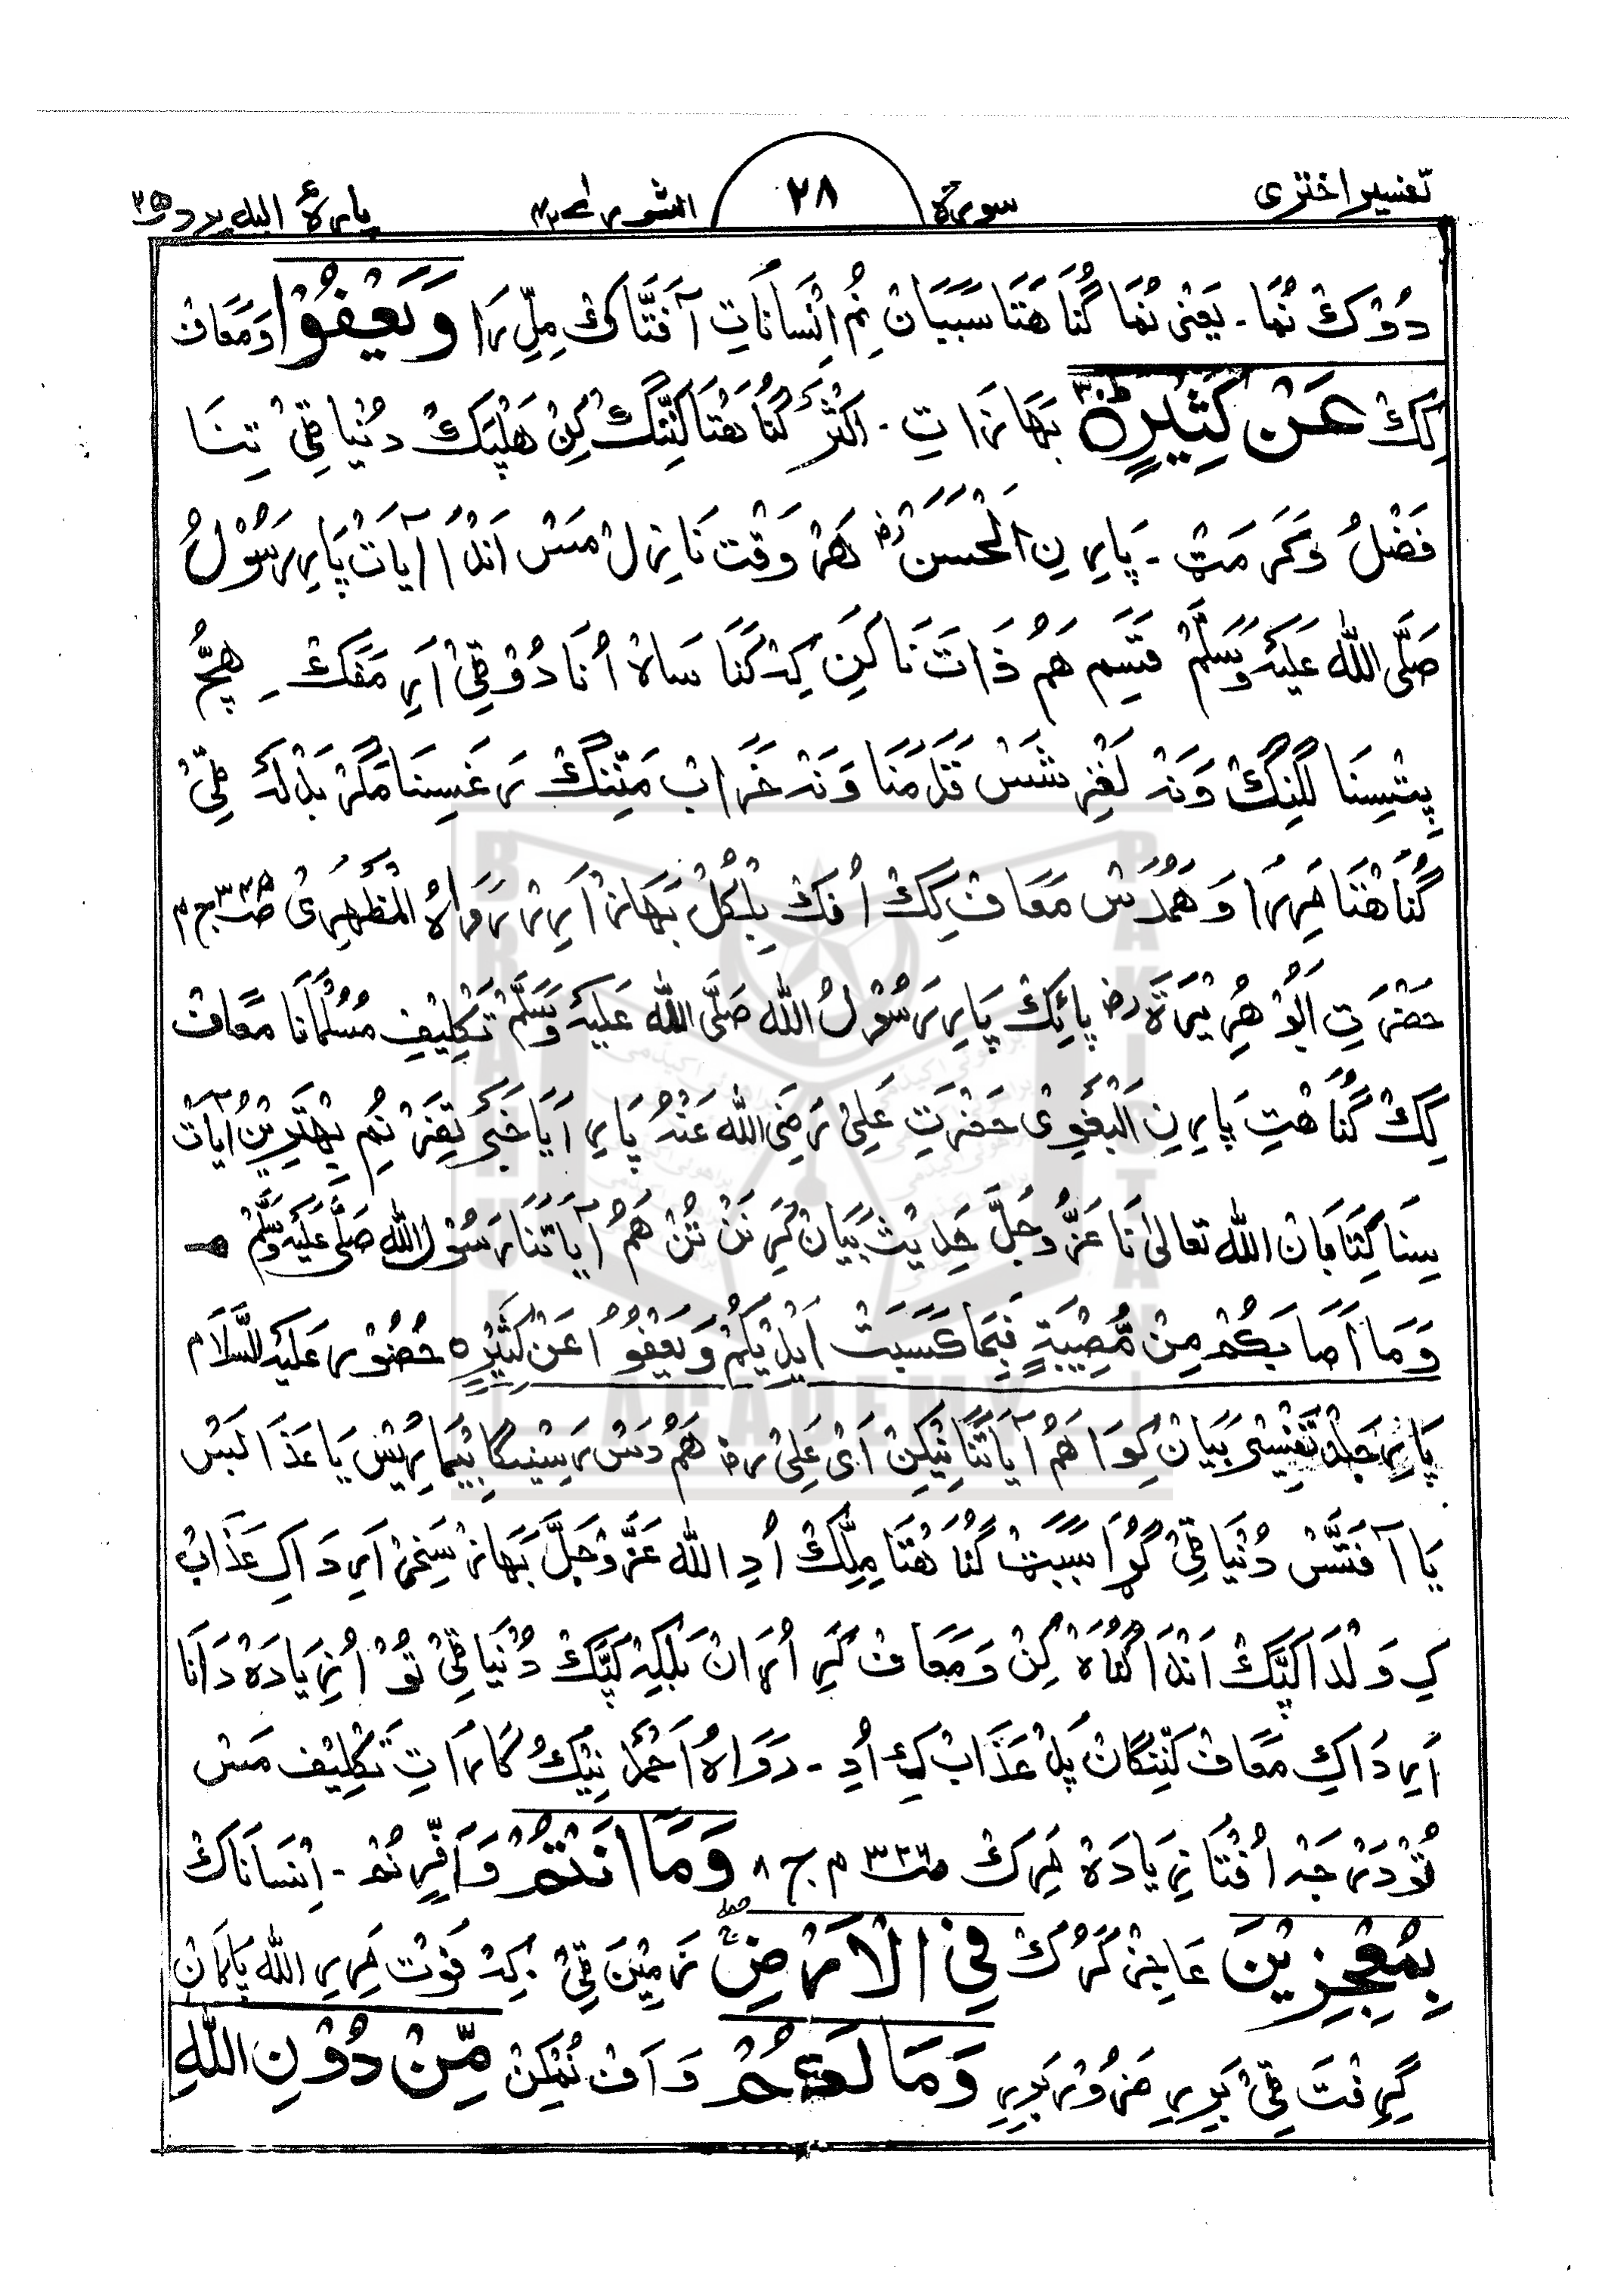 تفسیر اختری سورۃ ۲۸ الشوریٰ ۴۲ پارۂ الیہ یرد ۲۵
دُوْک نُمَا۔ یَعْنِیْ نُمَا گُنَاهَتَا سَبَبَانْ نُمْ اِنْسَانَاتِ آفَتَّاکْ مِلِّرَا وَيَعْفُوْا وَمَعَافْ
کِکْ عَنْ كَثِيْرٍ ۃ بَهَازَاتِ۔ اَکْثَرْ گُنَاهْتَا کَنِّنْگْ کِنْ هَلْپَکْ دُنْیَا ٹِیْ تِنَا
فَضْلُ وَکَرَمَٹْ۔ پَارِنِ الْحَسَنْ رض هَرْ وَقْت نَازِلْ مَسْ اَنْدَا آیَاتْ پَارِ رَسُوْلُ
صَلَّی اللّٰہ عَلَیْہِ وَسَلَّمْ قَسِمْ هَمْ ذَاتَنَا کَنِ کِہ کَنَا سَاہْ اُنَا دُوْ ٹِیْ اَرِ مَفَکْ هِچُّ
پِتِسِنَا لَگِنْگْ وَنَہ لَغْزِشَسْ قَدَمْنَا وَنَہ خَرَابْ مَنِّنْگْ رَغَسِنَا مَگَرْ بَدْلَہ ٹِیْ
گُنَاهْتَا مَرِرَا وَهَمُدُسْ مَعَافْ کِکْ اُفَکْ بِلْکُلْ بَهَازْ اَرِرْ رَوَاہُ الْمَظْهَرِیْ
حَضْرَتِ اَبُوْ هُرَیْرَۃ رض پَائِکْ پَارِ رَسُوْلُ اللّٰہ صَلَّی اللّٰہ عَلَیْہِ وَسَلَّمْ تَکْلِیْفِ مُسُلْمَانَا مَعَافْ
کِکْ گُنَاهْتِ پَارِنِ الْبَغَوِیْ حَضْرَتِ عَلِیْ رَضِیَ اللّٰہ عَنْہُ پَارِ اَیَا خَبَرْ تِفَرْ نُمْ بِهْتَرِیْنُ آیَاتْ
سِنَا کِتَابَانْ اللّٰہ تعالیٰ نَا عَزَّوَجَلَّ حَدِیْث بَیَانْ کَرِ نَنْ تُنْ هَمْ آیَاتَنَا رَسُوْلُ اللّٰہِ صَلَّی عَلَیْہِ وَسَلَّمْ
وَمَا اَصَابَكُمْ مِنْ مُّصِيْبَةٍ فَبِمَا كَسَبَتْ اَيْدِيْكُمْ وَيَعْفُوْا عَنْ كَثِيْرٍ ہ حُضُوْر عَلَیْہِ السَّلَام
پَارِ تَفْسِیْرِ بَیَانْ کِوَا هَمْ آیَاتَنَا نِیْکِنْ اَیْ عَلِیْ رض هَمْ دَسْ رَسِیْنگَا بِیْمَارِیَسْ یَا عَذَابَسْ
یَا آفَتَسْ دُنْیَا ٹِیْ گُوَا سَبَبَٹْ گُنَاهْتَا مِلِّکْ اُدِ اللّٰہ عَزَّوَجَلَّ بَهَازْ سَخِیْ اَرِ دَاکِ عَذَابْ
کِ وَلْدَا کِپَّکْ اَنْدَا گُنَاہْ کِنْ وَمَعَافْ کَرِ اُرَانْ بَلْکِہ کِپَّکْ دُنْیَا ٹِیْ تُوْ اُ زِیَادَہْ دَانَا
اَرِ دَاکِ مَعَافْ کَنِّنْگَانْ پَدْ عَذَابْ کِ اُدِ۔ رَوَاہُ اَحْمَدْ نِیْکُ کَارَاتِ تَکْلِیْف مَسْ
تُوْ دَرْجَہ اُفْتَا زِیَادَہ مَرِکْ ص ۳۲۶ ج ۸ وَمَا اَنْتُمْ وَاَفِّرِ نُمْ۔ اِنْسَانَاکْ
بِمُعْجِزِيْنَ عَاجِزْ کَرُکْ فِي الْاَرْضِ زَمِیْنَ ٹِیْ۔ کِہ فَوْت مَرِرِ اللّٰہ پَاکَانْ
گِرِفْتَ ٹِیْ بَرِرِ ضَرُوْر بَرِرِ وَمَا لَكُمْ وَاَفْ نُمْکِنْ مِّنْ دُوْنِ اللّٰهِ
BRAHUI
ACADEMY
PAKISTAN